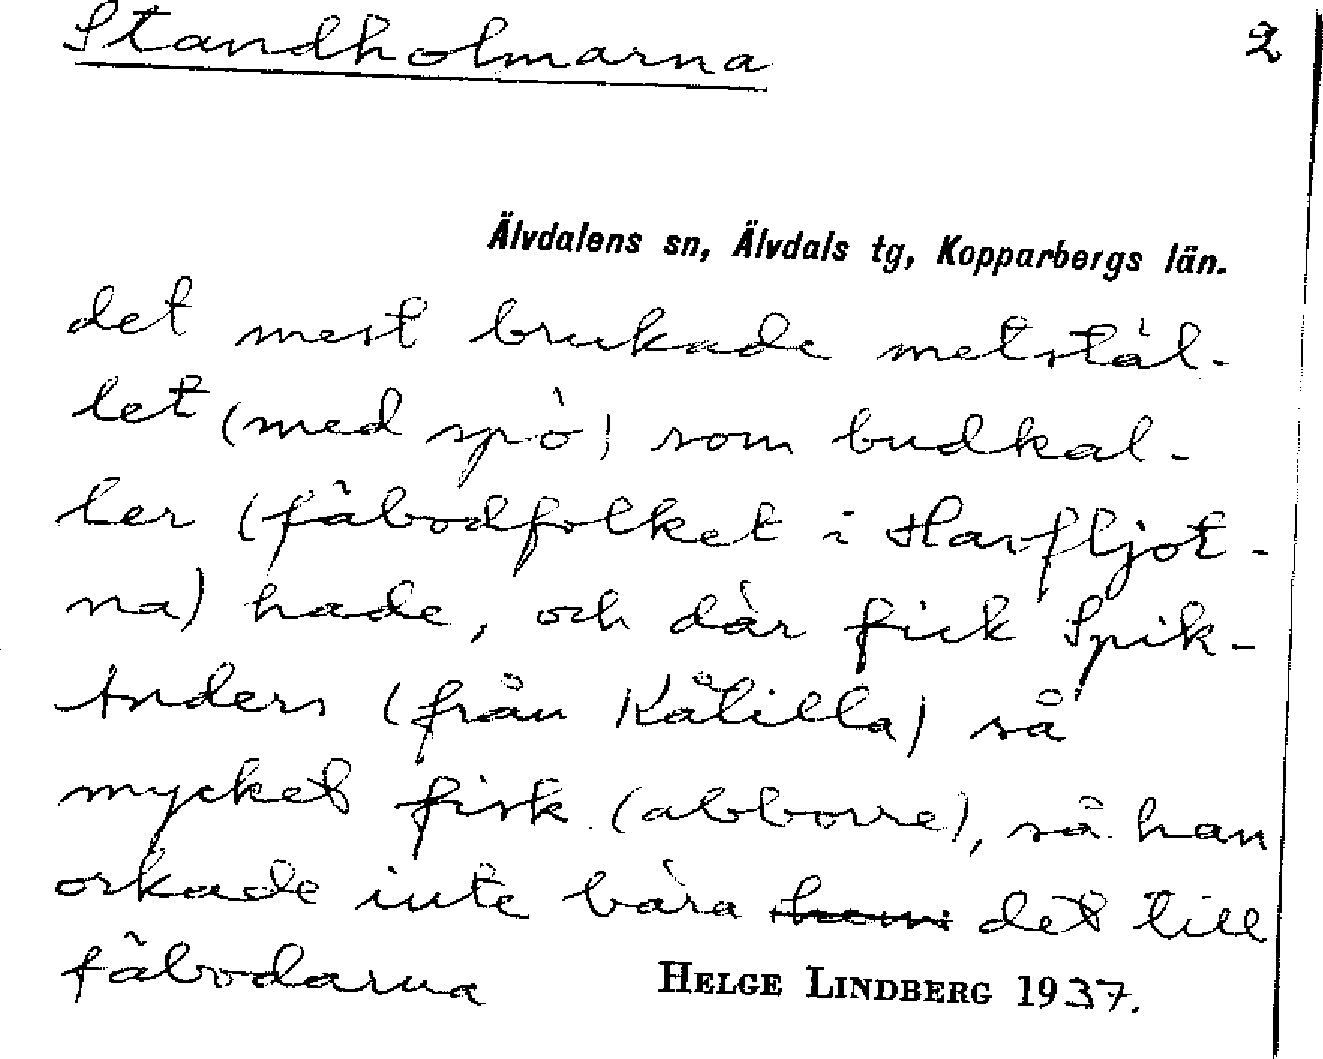 Standholmarna 2
Älvdalens sn, Älvdals tg, Kopparbergs län.
det mest brukade metstäl-
let (med spö) som budkal-
ler (fäbodfolket i Havfljot-
na) hade, och där fick Spik-
Anders (från Kåtilla) så
mycket fisk (abborre), så han
orkade inte bära hem det till
fäbodarna HELGE LINDBERG 1937.